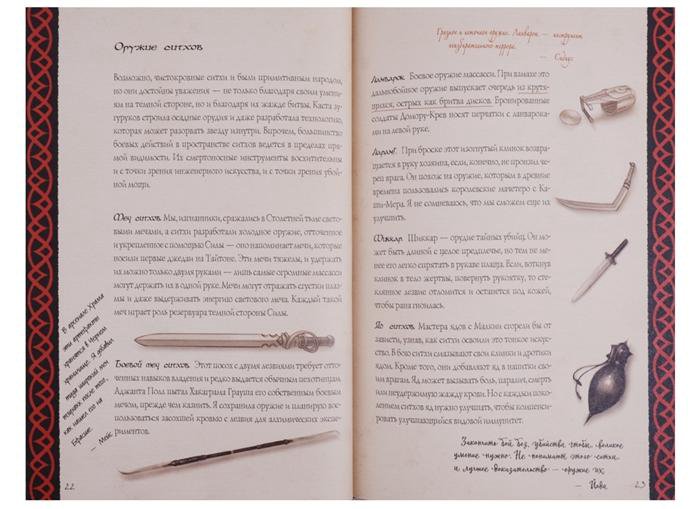 Оружие ситхов
Возможно, чистокровные ситхи и были примитивным народом,
но они достойны уважения — не только благодаря своим умени-
ям на темной стороне, но и благодаря их жажде битвы. Каста зу-
гуруков строила осадные орудия и даже разработала технологию,
которая может разорвать звезду изнутри. Впрочем, большинство
боевых действий в пространстве ситхов ведется в пределах пря-
мой видимости. Их смертоносные инструменты восхитительны
и с точки зрения инженерного искусства, и с точки зрения убой-
ной мощи.
Меч ситхов. Мы, изгнанники, сражались в Столетней тьме свето-
выми мечами, а ситхи разработали холодное оружие, отточенное
и укрепленное с помощью Силы — оно напоминает мечи, которые
носили первые джедаи на Тайтоне. Эти мечи тяжелы, и удержать
их можно только двумя руками — лишь самые огромные массасси
могут держать их в одной руке. Мечи могут отражать сгустки плаз-
мы и даже выдерживать энергию светового меча. Каждый такой
меч играет роль резервуара темной стороны Силы.
В арсенале Храма
эти артефакты
хранятся в Черном
хранилище. Я добавил
туда широкий меч
ситхов после того,
как нашел его на
— Мейс
Боевой меч ситхов. Этот посох с двумя лезвиями требует отто-
ченных навыков владения и редко выдается обычным пехотинцам
Аджанта Полл пытал Хакаграма Грауша его собственным боевым
мечом, прежде чем казнить. Я сохранила оружие и планирую вос-
пользоваться засохшей кровью с лезвия для алхимических экспе-
риментов.
22
Грязное и неточное оружие. Ланварок — инструмент
неизбирательного террора.
— Сидиус
Ланварок. Боевое оружие массасси. При взмахе это
дальнобойное оружие выпускает очередь из крутя-
щихся, острых как бритва дисков. Бронированные
солдаты Домору-Крев носят перчатки с ланварока-
ми на левой руке.
Паранг. При броске этот изогнутый клинок возвра-
щается в руку хозяина, если, конечно, не пронзил че-
реп врага. Он похож на оружие, которым в древние
времена пользовались королевские мачетеро с Ка-
ши-Мера. Я не сомневаюсь, что мы сможем еще их
улучшить.
Шиккар. Шиккар — орудие тайных убийц. Он мо-
жет быть длиной с целое предплечье, но тем не ме-
нее его легко спрятать в рукаве плаща. Если, воткнув
клинок в тело жертвы, повернуть рукоятку, то сте-
клянное лезвие отломится и останется под кожей,
чтобы рана гноилась.
Яд ситхов. Мастера ядов с Малкии сгорели бы от
зависти, узнав, как ситхи освоили это тонкое искус-
ство. В бою ситхи смазывают свои клинки и дротики
ядом. Кроме того, они добавляют яд в напитки сво-
им врагам. Яд может вызывать боль, паралич, смерть
или неудержимую жажду крови. Но с каждым поко-
лением ситхов яд нужно улучшать, чтобы компенси-
ровать улучшающийся видовой иммунитет.
Закончить бой без убийства чтобы, великое
умение нужно. Не понимать этого ситхи
и лучшее доказательство — оружие их.
— Йода
23